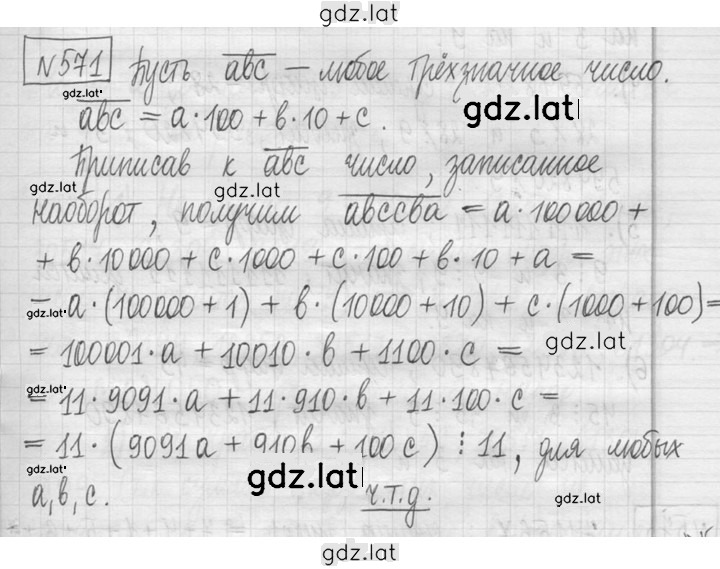 gdz.lat
№571 Пусть abc — любое трёхзначное число.
gdz.lat
abc = a·100 + в·10 + c.
gdz.lat
Приписав к abc число, записанное
gdz.lat
gdz.lat
наоборот, получим abccba = a·100000 +
+ в·10000 + c·1000 + c·100 + в·10 + a =
= a·(100000 + 1) + в·(10000 + 10) + c·(1000 + 100) =
gdz.lat
gdz.lat
= 100001·a + 10010·в + 1100·c =
gdz.lat
gdz.lat
= 11·9091·a + 11·910·в + 11·100·c =
= 11·(9091a + 910в + 100c) ⋮ 11, для любых
gdz.lat
gdz.lat
gdz.lat
a, в, c. ч.т.д.
gdz.lat